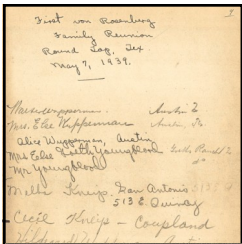 First von Rosenberg
Family Reunion
Round Top, Tex
May 7, 1939.
Walter Wipperman Austin
Mrs. Elee Wipperman Austin
Alice Wipperman, Austin
Mrs Elsie Youngblood
Mr Youngblood
Melba Kneip, San Antonio
513 E Quincy
Cecil Kneip - Coupland